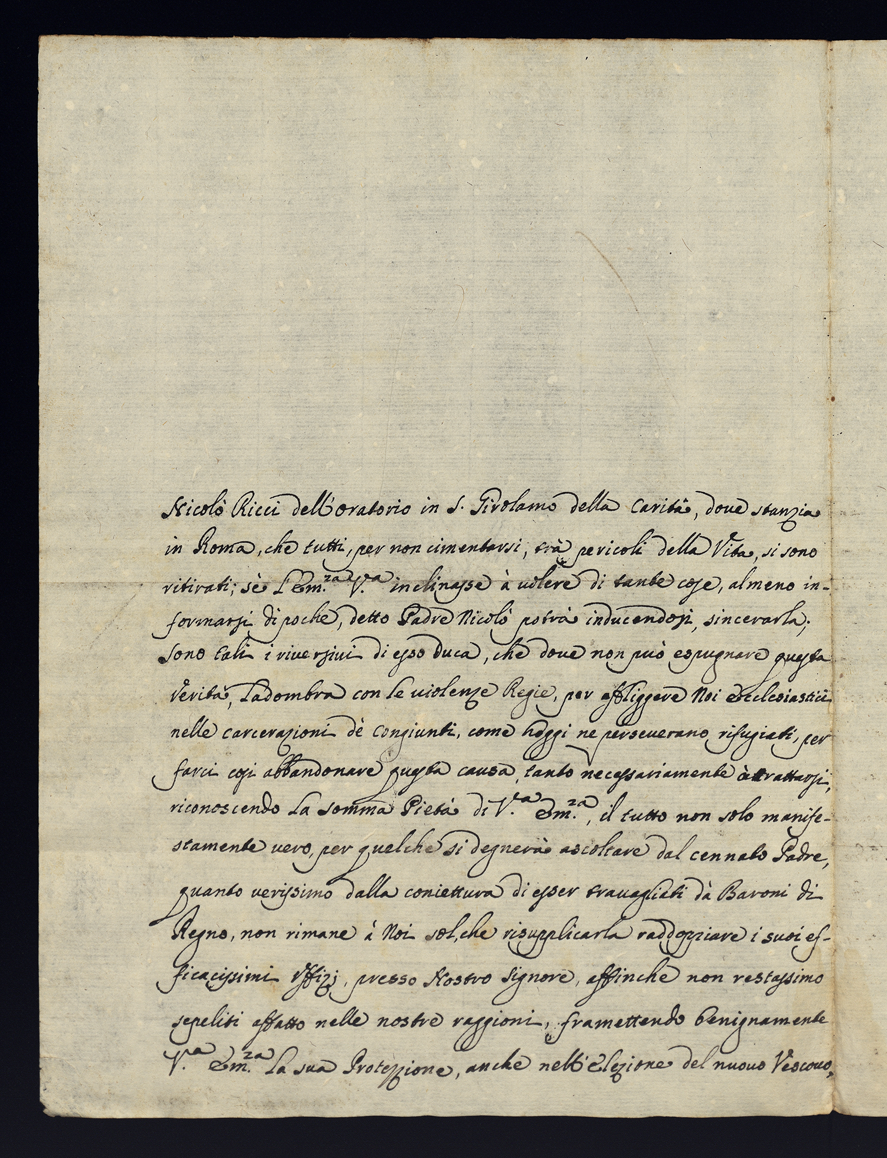 Nicolò Ricci dell'oratorio in S. Girolamo della Carità, dove stanzia
in Roma, che tutti, per non cimentarsi, trà pericoli della Vita, si sono
ritirati; sè L'Em.za V.a inclinasse à volere di tante cose, almeno in-
formarsi di poche, detto Padre Nicolò potrà inducendosi, sincerarla;
sono tali i riversivi di esso Duca, che dove non può espugnare questa
verità, l'adombra con le violenze Regie, per affliggere Noi Ecclesiastici
nelle carcerazioni dè Congiunti, come hoggi ne perseverano rifugiati, per
farci così abbandonare questa causa, tanto necessariamente à trattarsi,
riconoscendo la somma Pietà di V.a Em.za, il tutto non solo manife-
stamente vero, per quelche si degnerà ascoltare dal cennato Padre,
quanto verissimo dalla coniettura di esser travagliati dà Baroni di
Regno, non rimane à Noi sol, che risupplicarla raddoppiare i suoi ef-
ficacissimi Uffizj, presso Nostro Signore, affinche non restassimo
sepeliti affatto nelle nostre raggioni, framettendo benignamente
V.a Em.za la sua Protezzione, anche nell'Elezione del nuovo Vescovo,